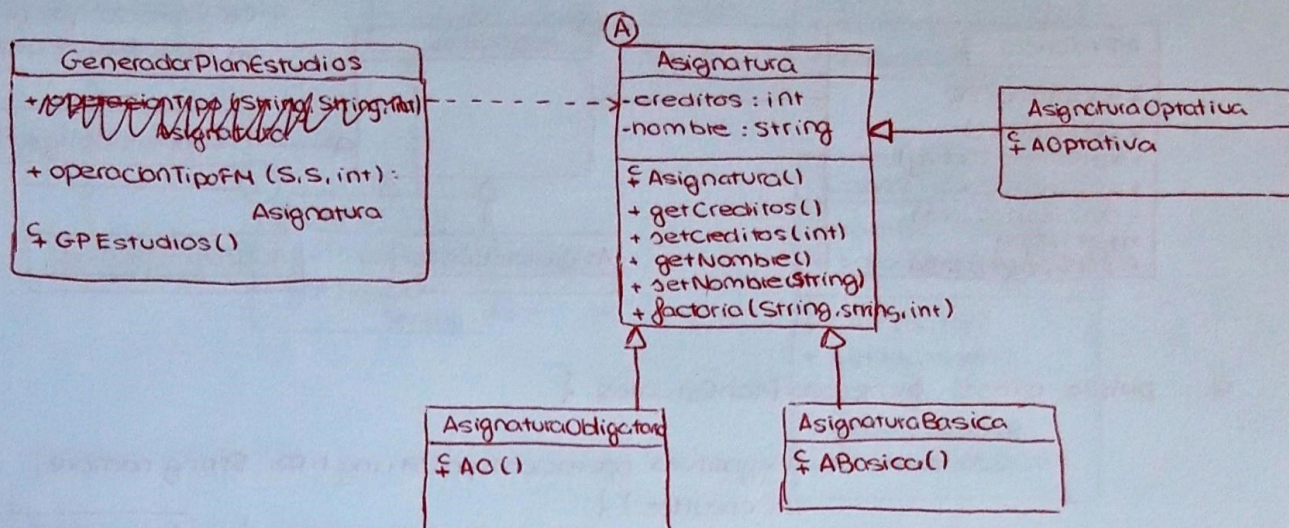 GeneradorPlanEstudios
+ operacionTipoFM (S, S, int):
Asignatura
c + GPEstudios()
A
Asignatura
- creditos : int
- nombre : string
c + Asignatura()
+ getCreditos()
+ setCreditos(int)
+ getNombre()
+ setNombre(String)
+ factoria(String, string, int)
AsignaturaOptativa
c + AOptativa
AsignaturaObligatoria
c + AO()
AsignaturaBasica
c + ABasica()